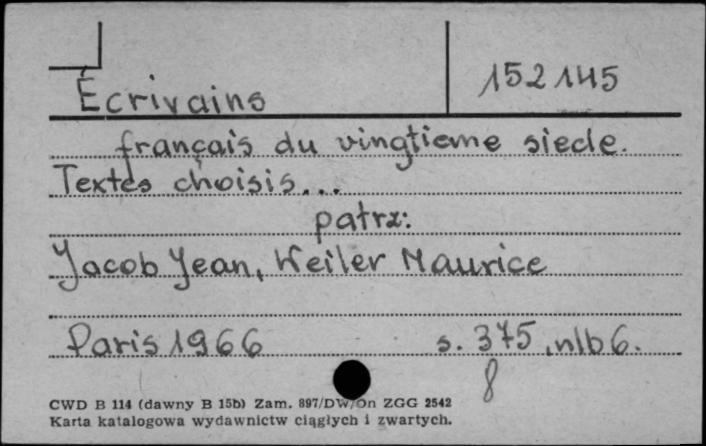 152145
Écrivains
français du vingtieme siecle.
Textes choisis...
patrz:
Jacob Jean, Weiler Maurice
Paris 1966 s. 375, nlb 6.
8
CWD B 114 (dawny B 15b) Zam. 897/DW/On ZGG 2542
Karta katalogowa wydawnictw ciągłych i zwartych.